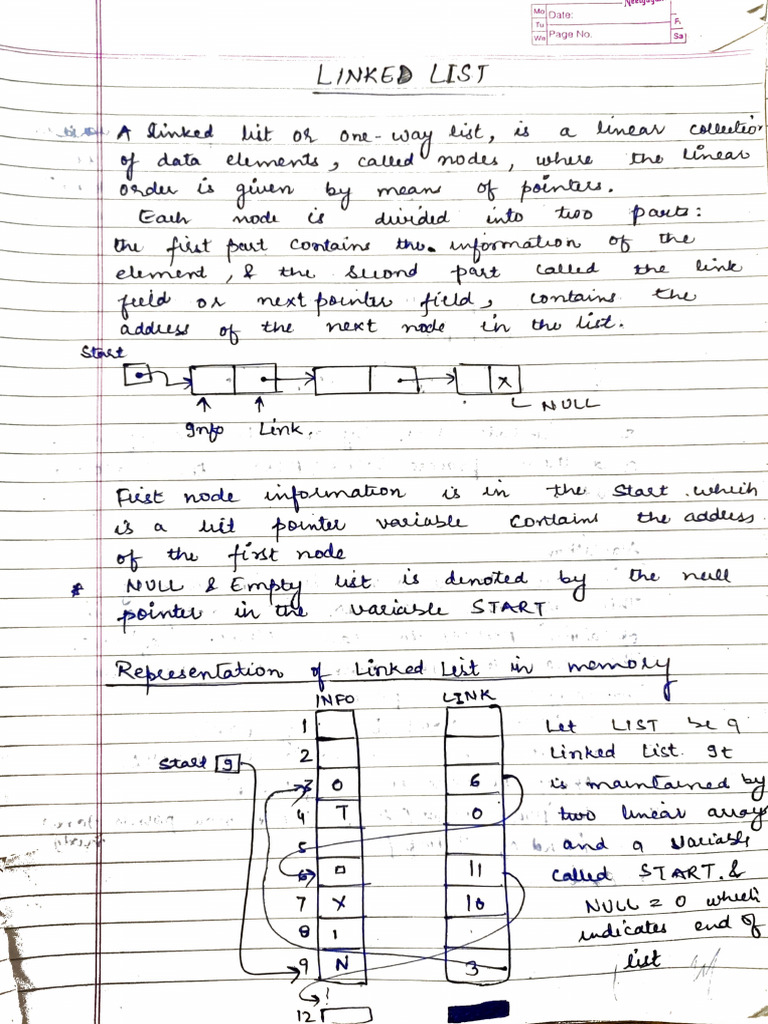 Mo
Tu
We
Date:
Page No.
Fr
Sa
LINKED LIST
A linked list or one-way list, is a linear collection
of data elements, called nodes, where the linear
order is given by means of pointers.
Each node is divided into two parts:
the first part contains the information of the
element, & the second part called the link
field or next pointer field, contains the
address of the next node in the list.
Start
X
NULL
Info Link.
First node information is in the Start which
is a list pointer variable contains the address
of the first node
* NULL & Empty list is denoted by the null
pointer in the variable START
Representation of Linked List in memory
INFO LINK
1
2
Start 9
3 O 6
4 T 0
5
6 □ 11
7 X 10
8 1 .
9 N 3
12
Let LIST be a
Linked List. It
is maintained by
two linear arrays
and a variable
called START. &
NULL = 0 which
indicates end of
list